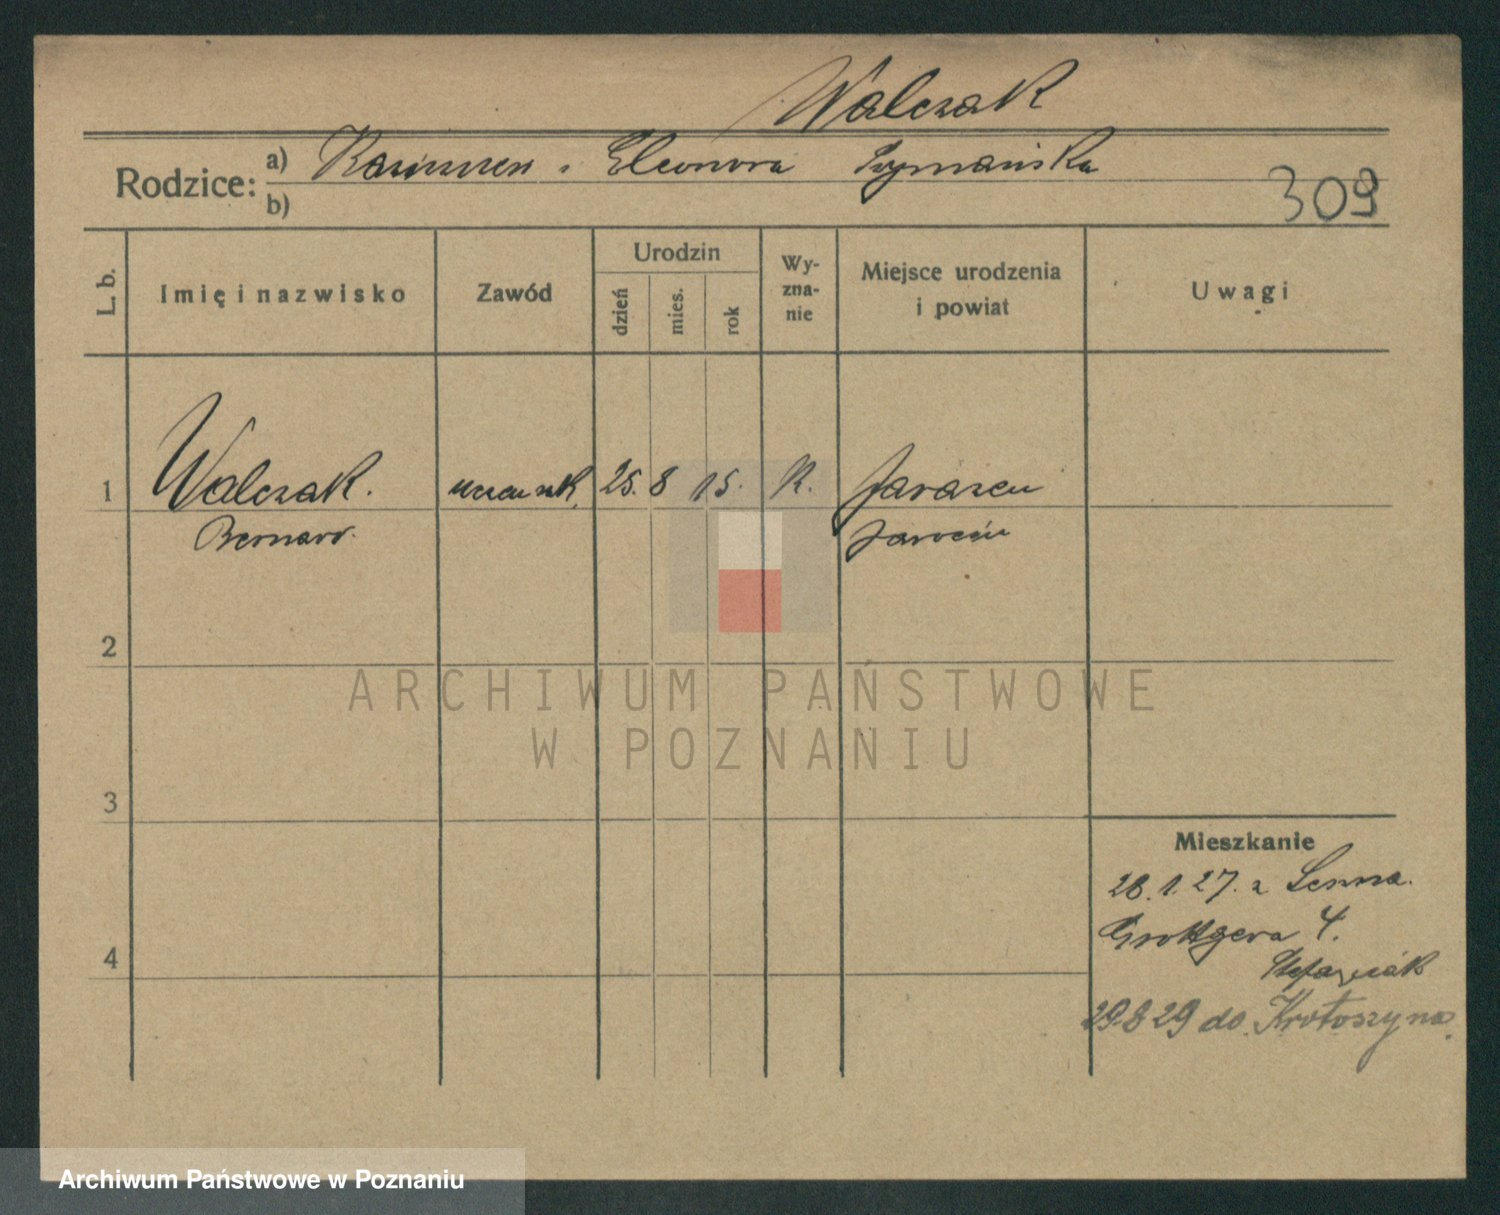 Walczak
Rodzice: a) Kazimierz i Eleonora Szymańska
b)
309
L. b.
Imię i nazwisko
Zawód
Urodzin
dzień
mies.
rok
Wy-
zna-
nie
Miejsce urodzenia
i powiat
Uwagi
1 Walczak. 25. 8 15. R. Jaraszew
Bernard. Jarocin
2
3
4
Mieszkanie
28.1.27. z
Grottgera 4.
Stefaniak
29.8 29 do Krotoszyna.
ARCHIWUM PAŃSTWOWE
W POZNANIU
Archiwum Państwowe w Poznaniu